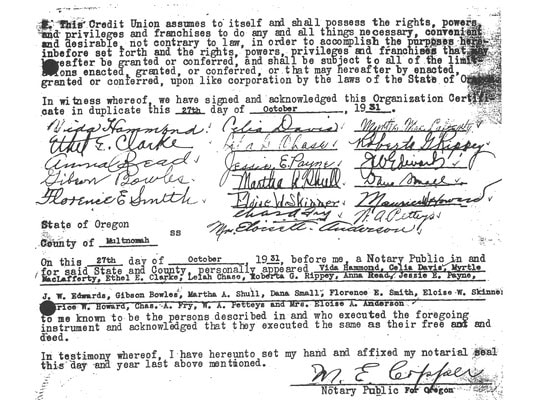 E. This Credit Union assumes to itself and shall possess the rights, powers
and privileges and franchises to do any and all things necessary, convenient
and desirable, not contrary to law, in order to accomplish the purposes here-
inbefore set forth and the rights, powers, privileges and franchises that may
hereafter be granted or conferred, and shall be subject to all of the limit-
ations enacted, granted, or conferred, or that may hereafter by enacted,
granted or conferred, upon like corporation by the laws of the State of Oregon.
In witness whereof, we have signed and acknowledged this Organization Certific-
ate in duplicate this 27th day of October, 1931.
Vida Hammond Celia Davis
Ethel E. Clarke Chase Roberta G Rippey
Anna Read Jessie E. Payne J W Edwards
Gibson Bowles Martha A. Shull Dana Small
Florence E. Smith Eloise W. Skinner Maurice Howard
Chas A Fry W. A. Petteys
Mrs. Eloise A. Anderson
State of Oregon
SS
County of Multnomah
On this 27th day of October, 1931, before me, a Notary Public in and
for said State and County personally appeared Vida Hammond, Celia Davis, Myrtle
MacLafferty, Ethel E. Clarke, Lelah Chase, Roberta G. Rippey, Anna Read, Jessie E. Payne,
J. W. Edwards, Gibson Bowles, Martha A. Shull, Dana Small, Florence E. Smith, Eloise W. Skinner
rice W. Howard, Chas. A. Fry, W. A. Petteys and Mrs. Eloise A. Anderson
to me known to be the persons described in and who executed the foregoing
instrument and acknowledged that they executed the same as their free and and
deed.
In testimony whereof, I have hereunto set my hand and affixed my notarial seal
this day and year last above mentioned.
M. E. Coppler
Notary Public For Oregon